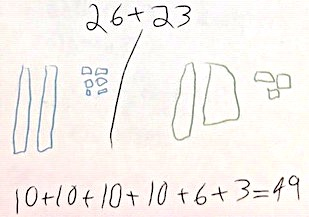 26+23
10+10+10+10+6+3=49